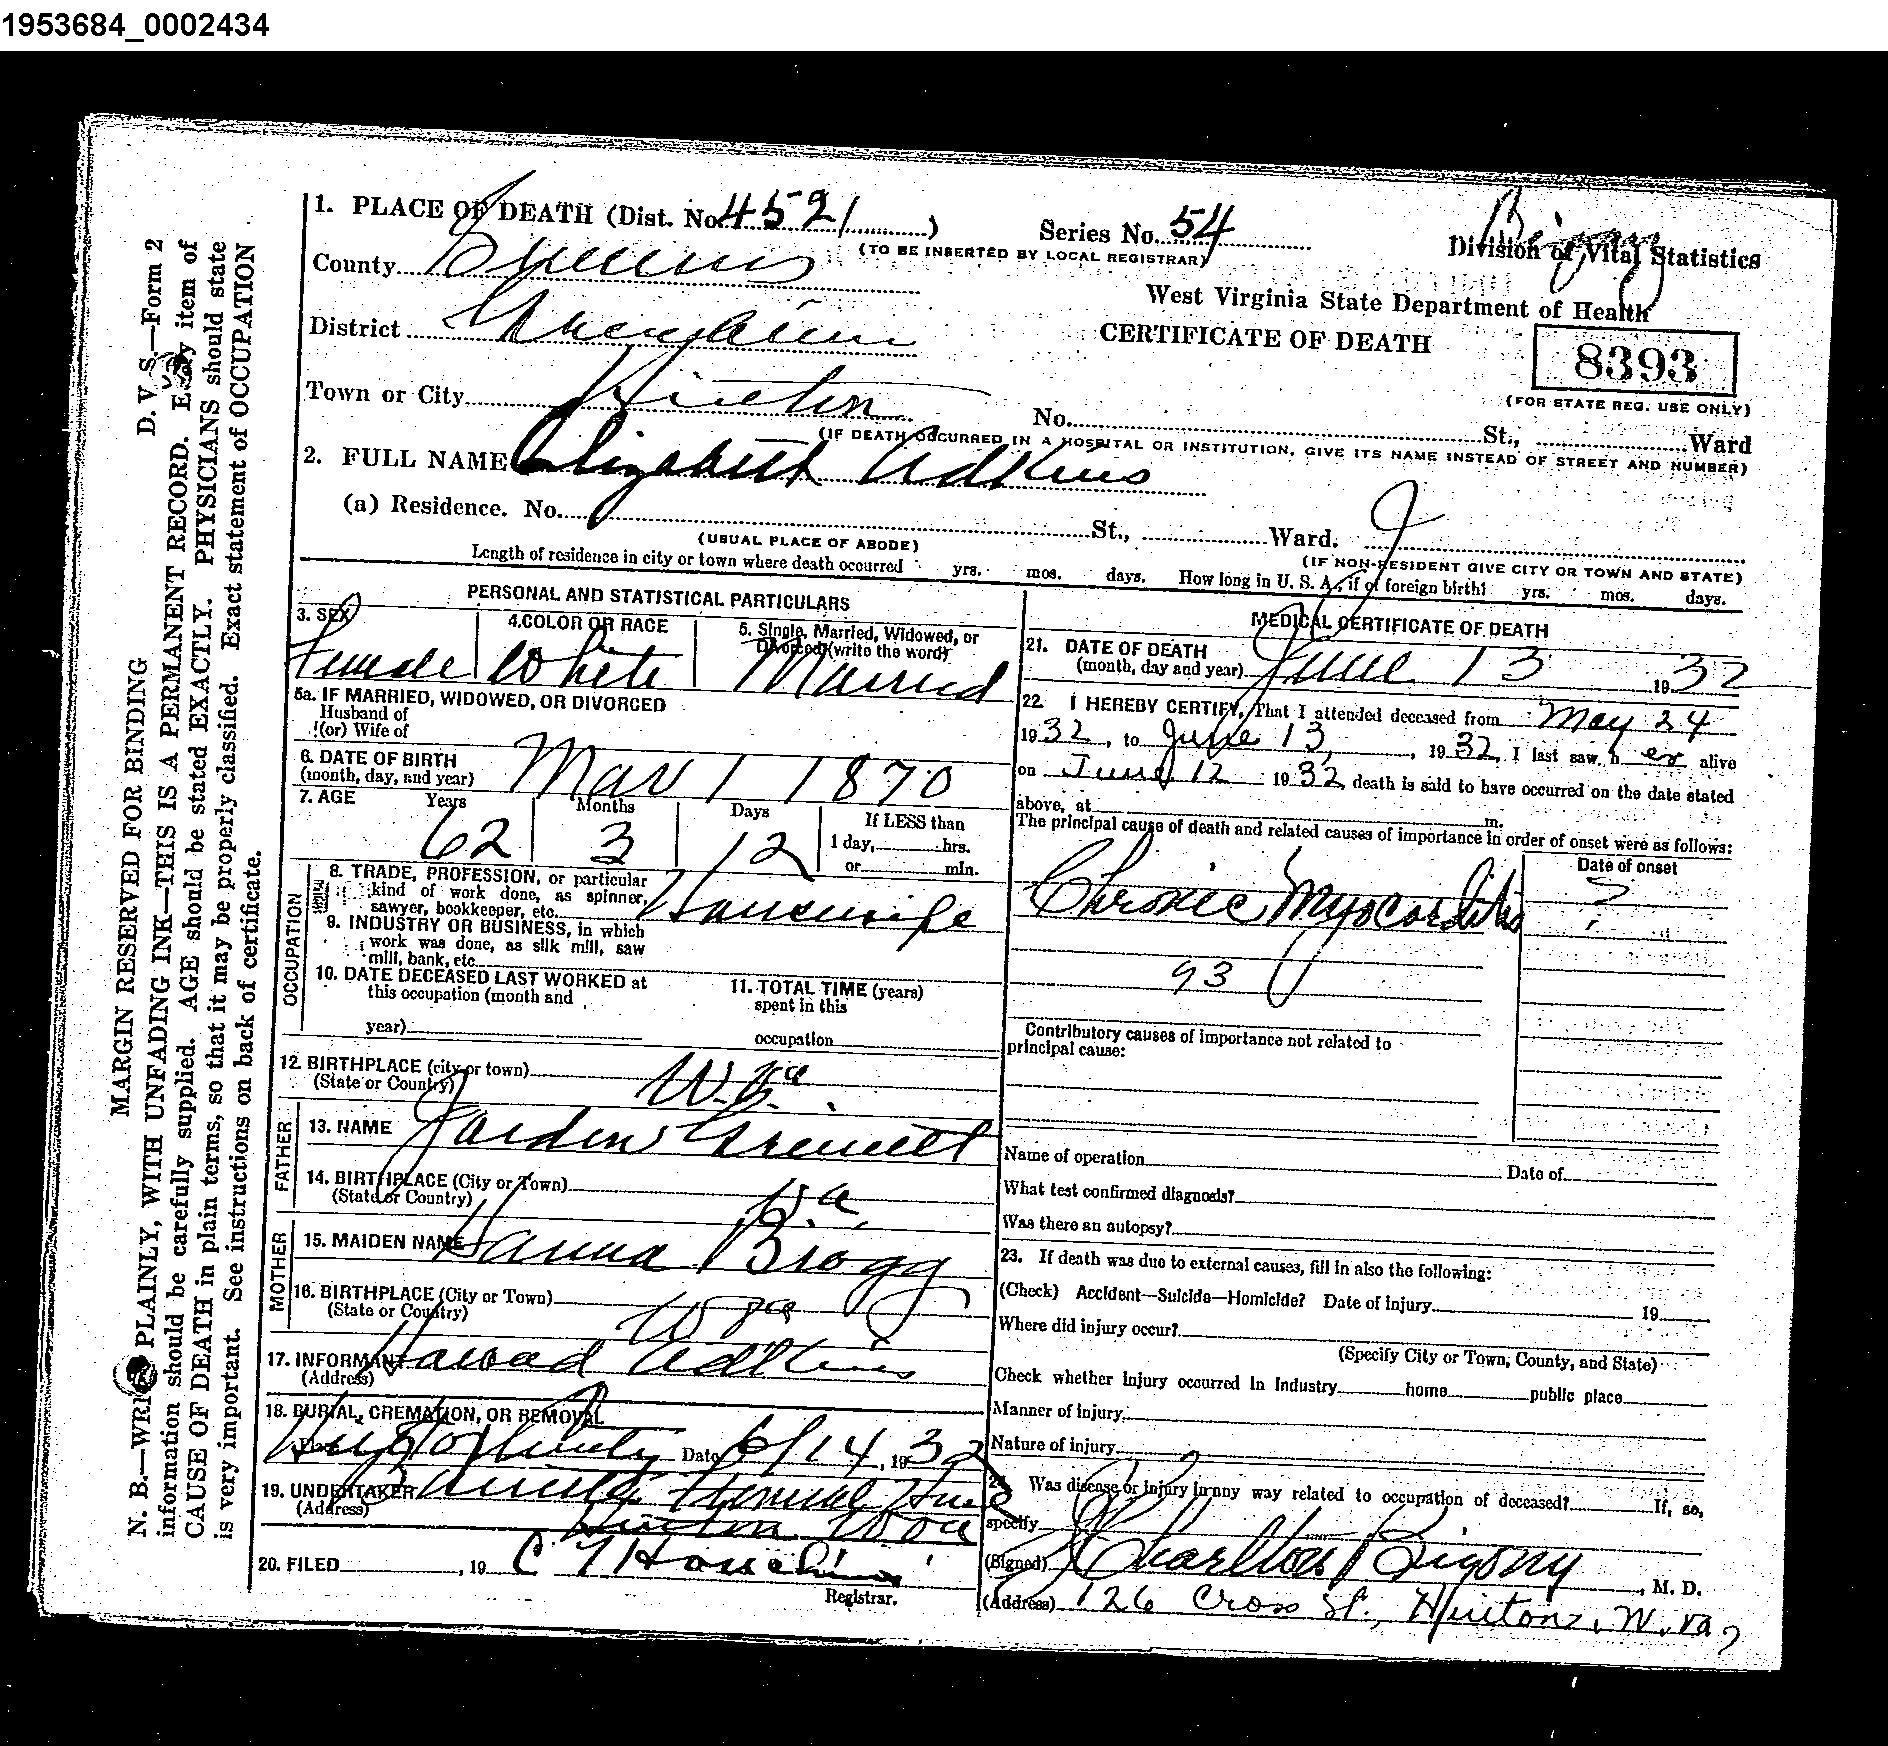 1953684_0002434
1. PLACE OF DEATH (Dist. No. 4521)
Series No. 54
(TO BE INSERTED BY LOCAL REGISTRAR)
Bigony
Division of Vital Statistics
County Summers
West Virginia State Department of Health
District Greenbrier
CERTIFICATE OF DEATH
8393
(FOR STATE REG. USE ONLY)
Town or City Hinton
No. St., Ward
(IF DEATH OCCURRED IN A HOSPITAL OR INSTITUTION, GIVE ITS NAME INSTEAD OF STREET AND NUMBER)
2. FULL NAME Elizabeth Adkins
(a) Residence. No. St., Ward.
(USUAL PLACE OF ABODE)
(IF NON-RESIDENT GIVE CITY OR TOWN AND STATE)
Length of residence in city or town where death occurred yrs. mos. days. How long in U. S. A., if of foreign birth? yrs. mos. days.
PERSONAL AND STATISTICAL PARTICULARS
3. SEX
Female
4. COLOR OR RACE
White
5. Single, Married, Widowed, or
Divorced (write the word)
Married
5a. IF MARRIED, WIDOWED, OR DIVORCED
Husband of
(or) Wife of
6. DATE OF BIRTH
(month, day, and year) Mar 1 1870
7. AGE Years Months Days If LESS than
62 3 12
1 day, hrs.
or min.
OCCUPATION
8. TRADE, PROFESSION, or particular
kind of work done, as spinner,
sawyer, bookkeeper, etc. Housewife
9. INDUSTRY OR BUSINESS, in which
work was done, as silk mill, saw
mill, bank, etc.
10. DATE DECEASED LAST WORKED at
this occupation (month and
year)
11. TOTAL TIME (years)
spent in this
occupation
12. BIRTHPLACE (city or town)
(State or Country) W. Va.
FATHER
13. NAME Jorden
14. BIRTHPLACE (City or Town)
(State or Country) Va.
MOTHER
15. MAIDEN NAME Hanna Bragg
16. BIRTHPLACE (City or Town)
(State or Country) W Va
17. INFORMANT Adkins
(Address)
18. BURIAL, CREMATION, OR REMOVAL
Date 6/14, 1932
19. UNDERTAKER Funeral Home
(Address) Hinton W Va
20. FILED , 19
Registrar.
MEDICAL CERTIFICATE OF DEATH
21. DATE OF DEATH
(month, day and year) June 13 1932
22. I HEREBY CERTIFY, That I attended deceased from May 24
1932, to June 13, , 1932, I last saw her alive
on June 12 1932 death is said to have occurred on the date stated
above, at m.
The principal cause of death and related causes of importance in order of onset were as follows:
Date of onset
Chronic Myocarditis ?
93
Contributory causes of importance not related to
principal cause:
Name of operation Date of
What test confirmed diagnosis?
Was there an autopsy?
23. If death was due to external causes, fill in also the following:
(Check) Accident—Suicide—Homicide? Date of injury 19
Where did injury occur?
(Specify City or Town, County, and State)
Check whether injury occurred in Industry home public place
Manner of injury
Nature of injury
24. Was disease or injury in any way related to occupation of deceased? If, so,
specify
(Signed) J Charlton Bigony, M. D.
(Address) 126 Cross St., Hinton, W. Va,
MARGIN RESERVED FOR BINDING D. V. S.—Form 2
N. B.—WRITE PLAINLY, WITH UNFADING INK—THIS IS A PERMANENT RECORD. Every item of
information should be carefully supplied. AGE should be stated EXACTLY. PHYSICIANS should state
CAUSE OF DEATH in plain terms, so that it may be properly classified. Exact statement of OCCUPATION
is very important. See instructions on back of certificate.